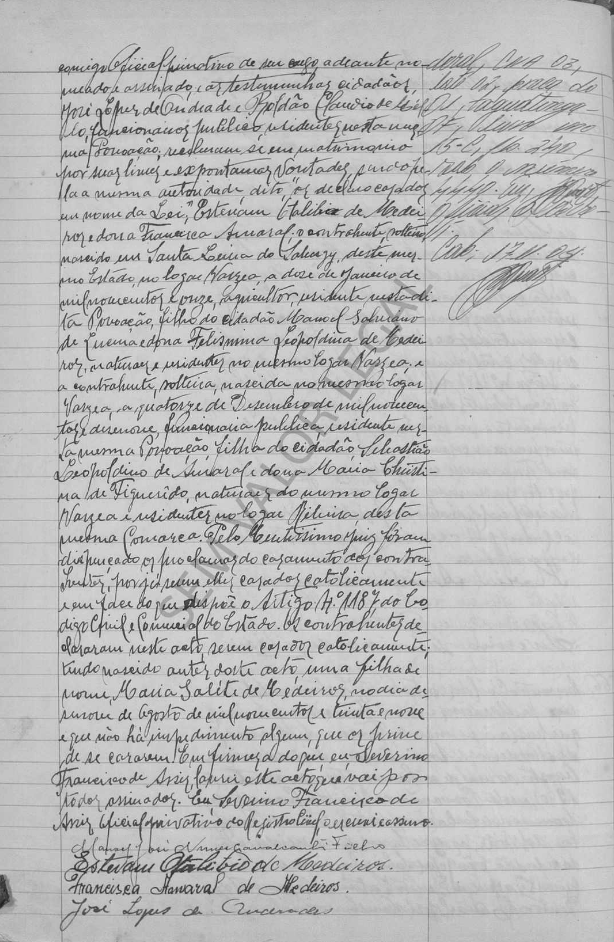 comigo Oficial privativo de seu cargo, adeante no-
meado e assinado e as testemunhas, cidadãos,
José Lopes de Andrade e Roldão Claudio de
funcionarios publicos, residentes nesta mes-
ma Povoação, receberam-se em matrimonio
por suas livres e expontaneas vontades, sendo pe-
la a mesma autoridade, dito, "os declaro casados
em nome da Lei", Estevam Otalibio de Medei-
ros e dona Francisca Amaral, o contrahente, solteiro
nascido em Santa Luzia do Sabugy, deste mes-
mo Estado, no logar Varzea, a doze de Janeiro de
mil novecentos e onze, agricultor, residente nesta di-
ta Povoação, filho do cidadão Manoel Salviano
de Lucena e dona Felismina Leopoldina de Medei-
ros, naturaes e residentes no mesmo logar Varzea, e
a contrahente, solteira, nascida no mesmo logar
Varzea, a quatorze de Desembro de mil novecen-
tos e desenove, funcionaria publica, residente nes-
ta mesma Povoação, filha do cidadão Sebastião
Leopoldino de Amaral e dona Maria Christi-
na de Figueirêdo, naturaes do mesmo logar
Varzea e residentes no logar desta
mesma Comarca. Pelo Meritissimo Juiz foram
dispensado os proclamas do casamento dos contra
hentes, por já serem elles casados catolicamente
e em face do que despõe o Artigo Nº 1187 do Co
digo Civil e Comercial do Estado. Os contrahentes de
clararam neste acto, serem casados catolicamente,
tendo nascido antes deste acto, uma filha de
nome, Maria Salête de Medeiros, no dia de
senove de Agosto de mil novecentos e trinta e nove
e que não há impedimento algum, que os prive
de se casarem. Em firmesa do que eu Severino
Francisco de Assis, lavrei este acto que vai por
todos assinados. Eu, Severino Francisco de
Assis Oficial privativo do Registro Civil, o escrevi e assino.
Cavalcanti Filho
Estevam Otalibio de Medeiros.
Francisca Amaral de Medeiros.
José Lopes de Andrade
03,
02,
15-C,
17.11.04.
SEM VALOR LEGAL